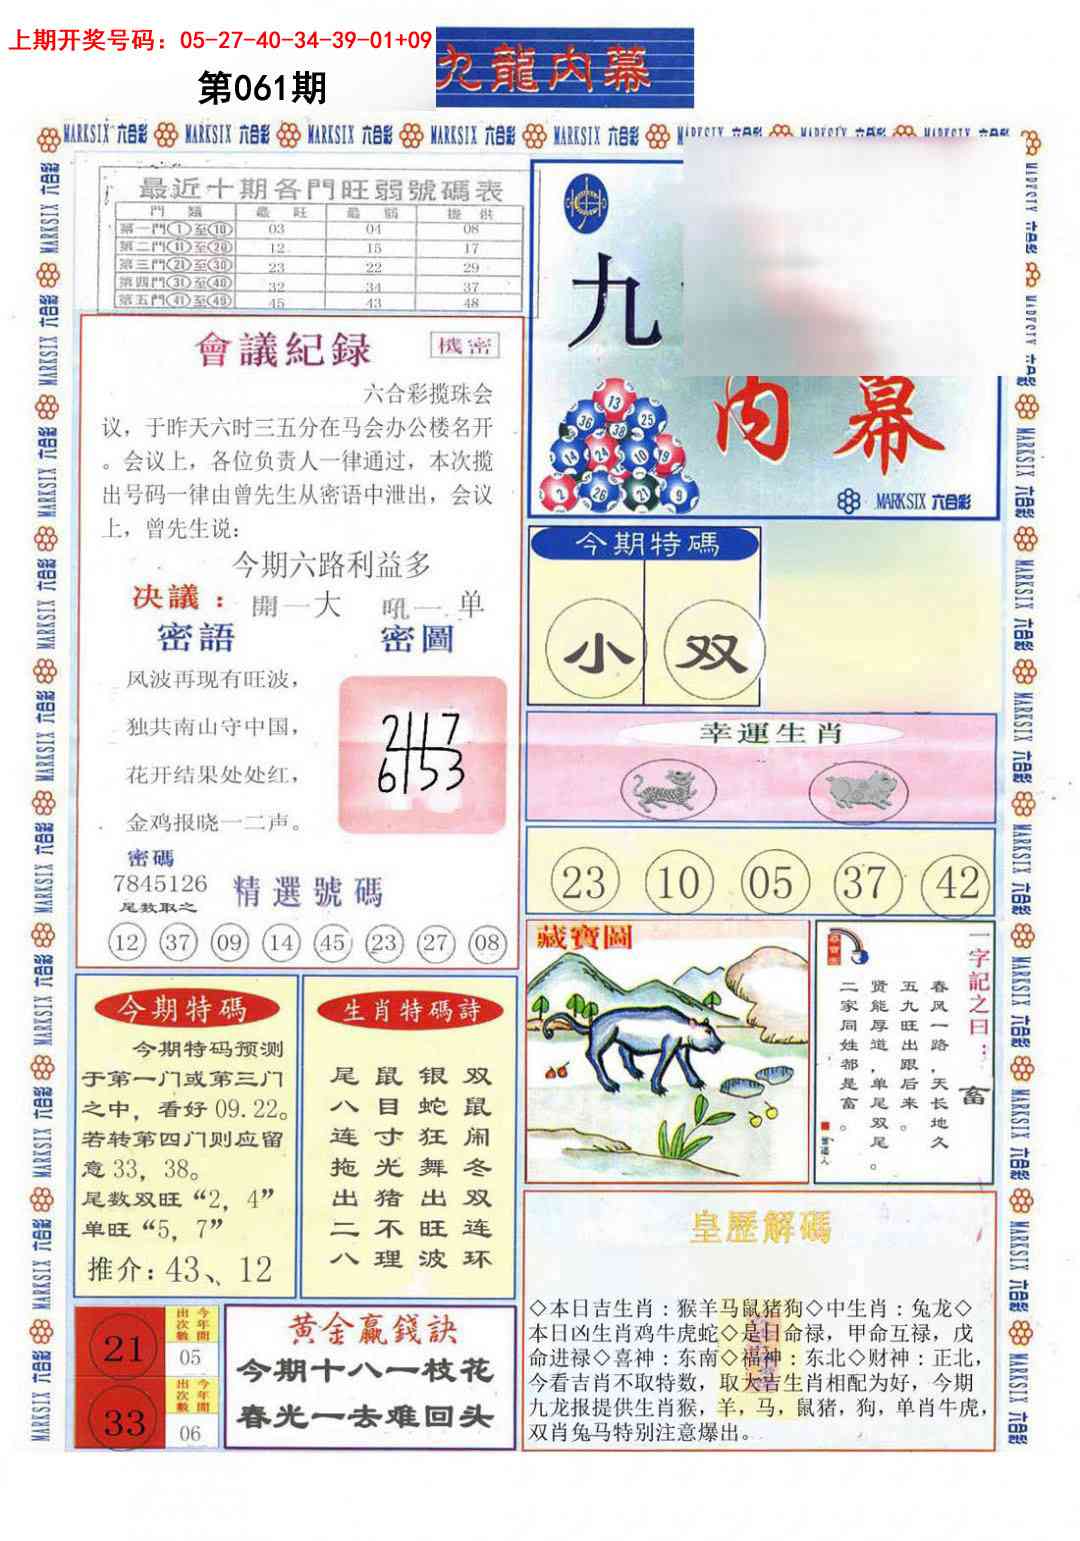 上期开奖号码：05-27-40-34-39-01+09
第061期
九龍内幕
MARKSIX 六合彩 MARKSIX 六合彩 MARKSIX 六合彩 MARKSIX 六合彩 MARKSIX 六合彩
最近十期各門旺弱號碼表
門類 最旺 最弱 提供
第一門①至⑩ 03 04 08
第二門⑪至⑳ 12 15 17
第三門㉑至㉚ 23 22 29
第四門㉛至㊵ 32 34 37
第五門㊶至㊾ 45 43 48
會議紀録
機密
六合彩揽珠会
议，于昨天六时三五分在马会办公楼名开
。会议上，各位负责人一律通过，本次揽
出号码一律由曾先生从密语中泄出，会议
上，曾先生说：
今期六路利益多
决議：開一大 吼一单
密語 密圖
风波再现有旺波，
独共南山守中国，
花开结果处处红，
金鸡报晓一二声。
2117
6153
密碼
7845126
尾数取之
精選號碼
12 37 09 14 45 23 27 08
九
内幕
13
36 38 25
14 24 10 19
2 26 21 9
MARKSIX 六合彩
今期特碼
小 双
幸運生肖
23 10 05 37 42
藏寶圖
一字記之曰：畜
春风一路，天长地久
五九旺出跟后来。
贤能厚道，单尾双尾。
二家同姓都是畜。
今期特碼
今期特码预测
于第一门或第三门
之中，看好 09.22。
若转第四门则应留
意 33，38。
尾数双旺“2，4”
单旺“5，7”
推介：43、12
生肖特碼詩
尾鼠银双
八目蛇鼠
连寸狂闹
拖光舞冬
出猪出双
二不旺连
八理波环
21
今年開出次數
05
33
今年開出次數
06
黄金赢錢訣
今期十八一枝花
春光一去难回头
皇歷解碼
◇本日吉生肖：猴羊马鼠猪狗◇中生肖：兔龙◇
本日凶生肖鸡牛虎蛇◇是日命禄，甲命互禄，戊
命进禄◇喜神：东南◇福神：东北◇财神：正北，
今看吉肖不取特数，取大吉生肖相配为好，今期
九龙报提供生肖猴，羊，马，鼠猪，狗，单肖牛虎，
双肖兔马特别注意爆出。